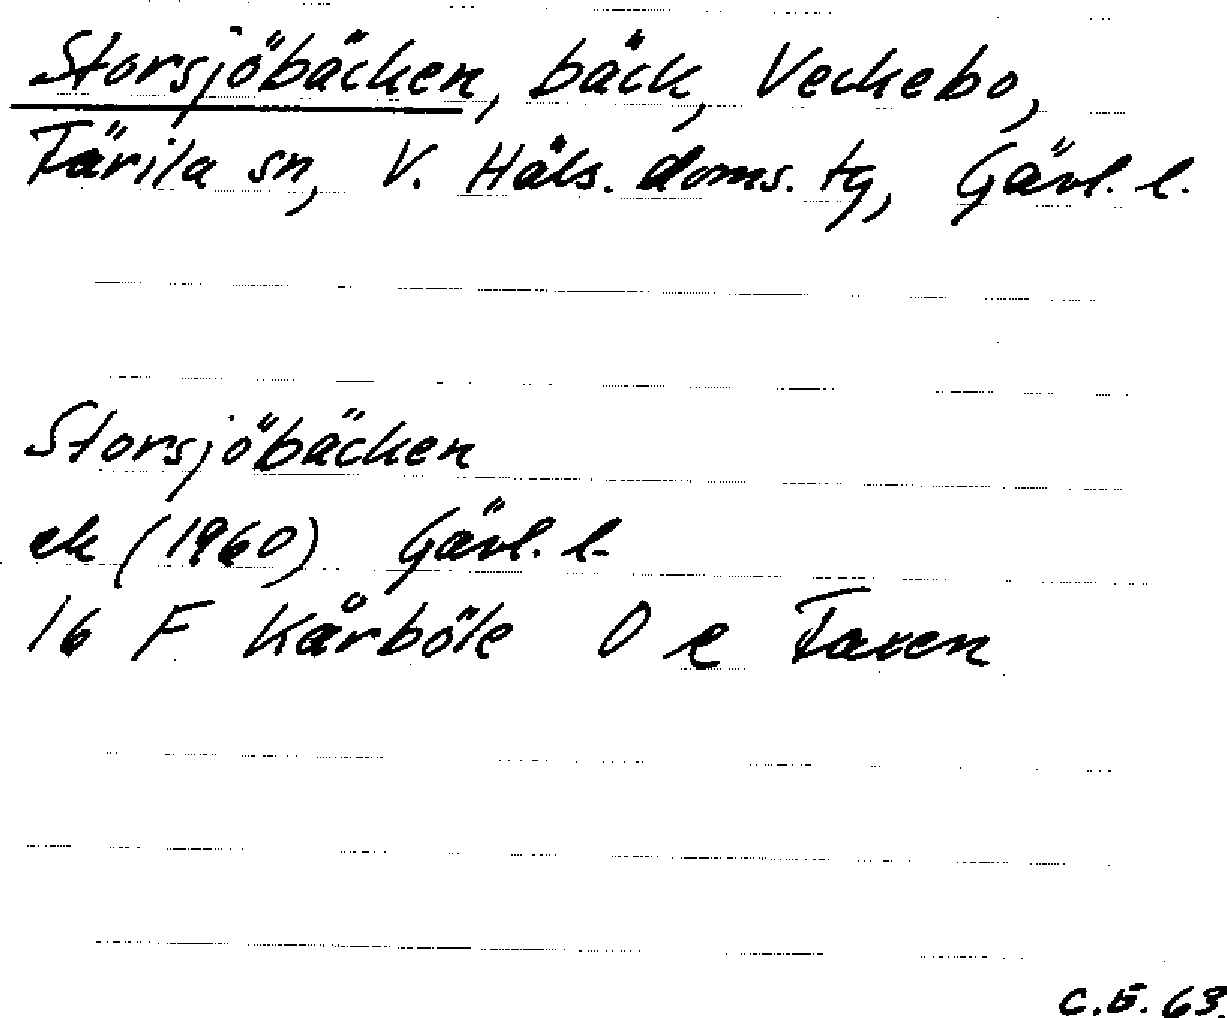 Storsjöbäcken, bäck, Veckebo,
Färila sn, V. Häls. doms. tg, Gävl. l.
Storsjöbäcken
ek (1960) Gävl. l.
16 F Kårböle 0 e Faxen
C.E. 63.